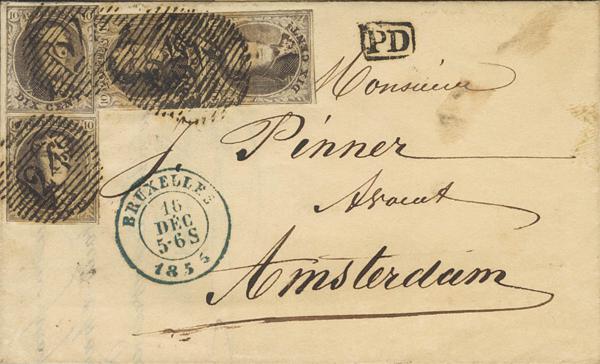 10 10
DIX CENT
10
24
PD
Monsieur
J Pinner
Avocat
Amsterdam
BRUXELLES
16
DÉC
5-6S
1854